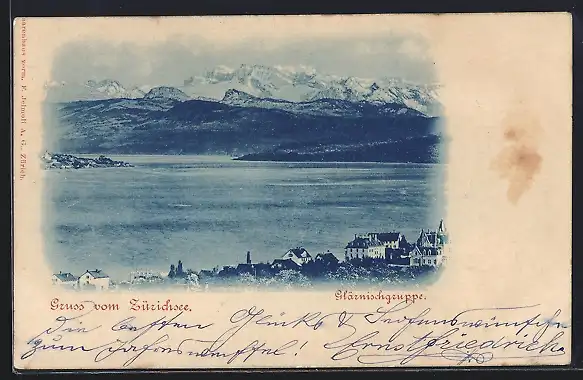 Warenhaus vorm. F. Jelmoli A. G., Zürich.
Gruss vom Zürichsee.
Glärnischgruppe.
die besten Glücks & Segenswünsche
zum Jahreswechsel!
Ernst Friedrich